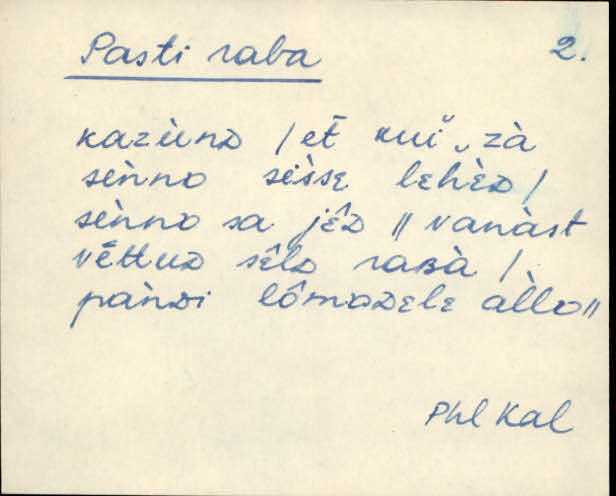 Pasti raba 2.
kazùnᴅ / et̄ kui „ zà
sènnᴅ sèsse lehèᴅ /
sènnᴅ sa jêᴅ // vanàst
vēttuᴅ sêlᴅ raʙà /
pànᴅi lômaᴅele àllᴅ //
Phl Kal